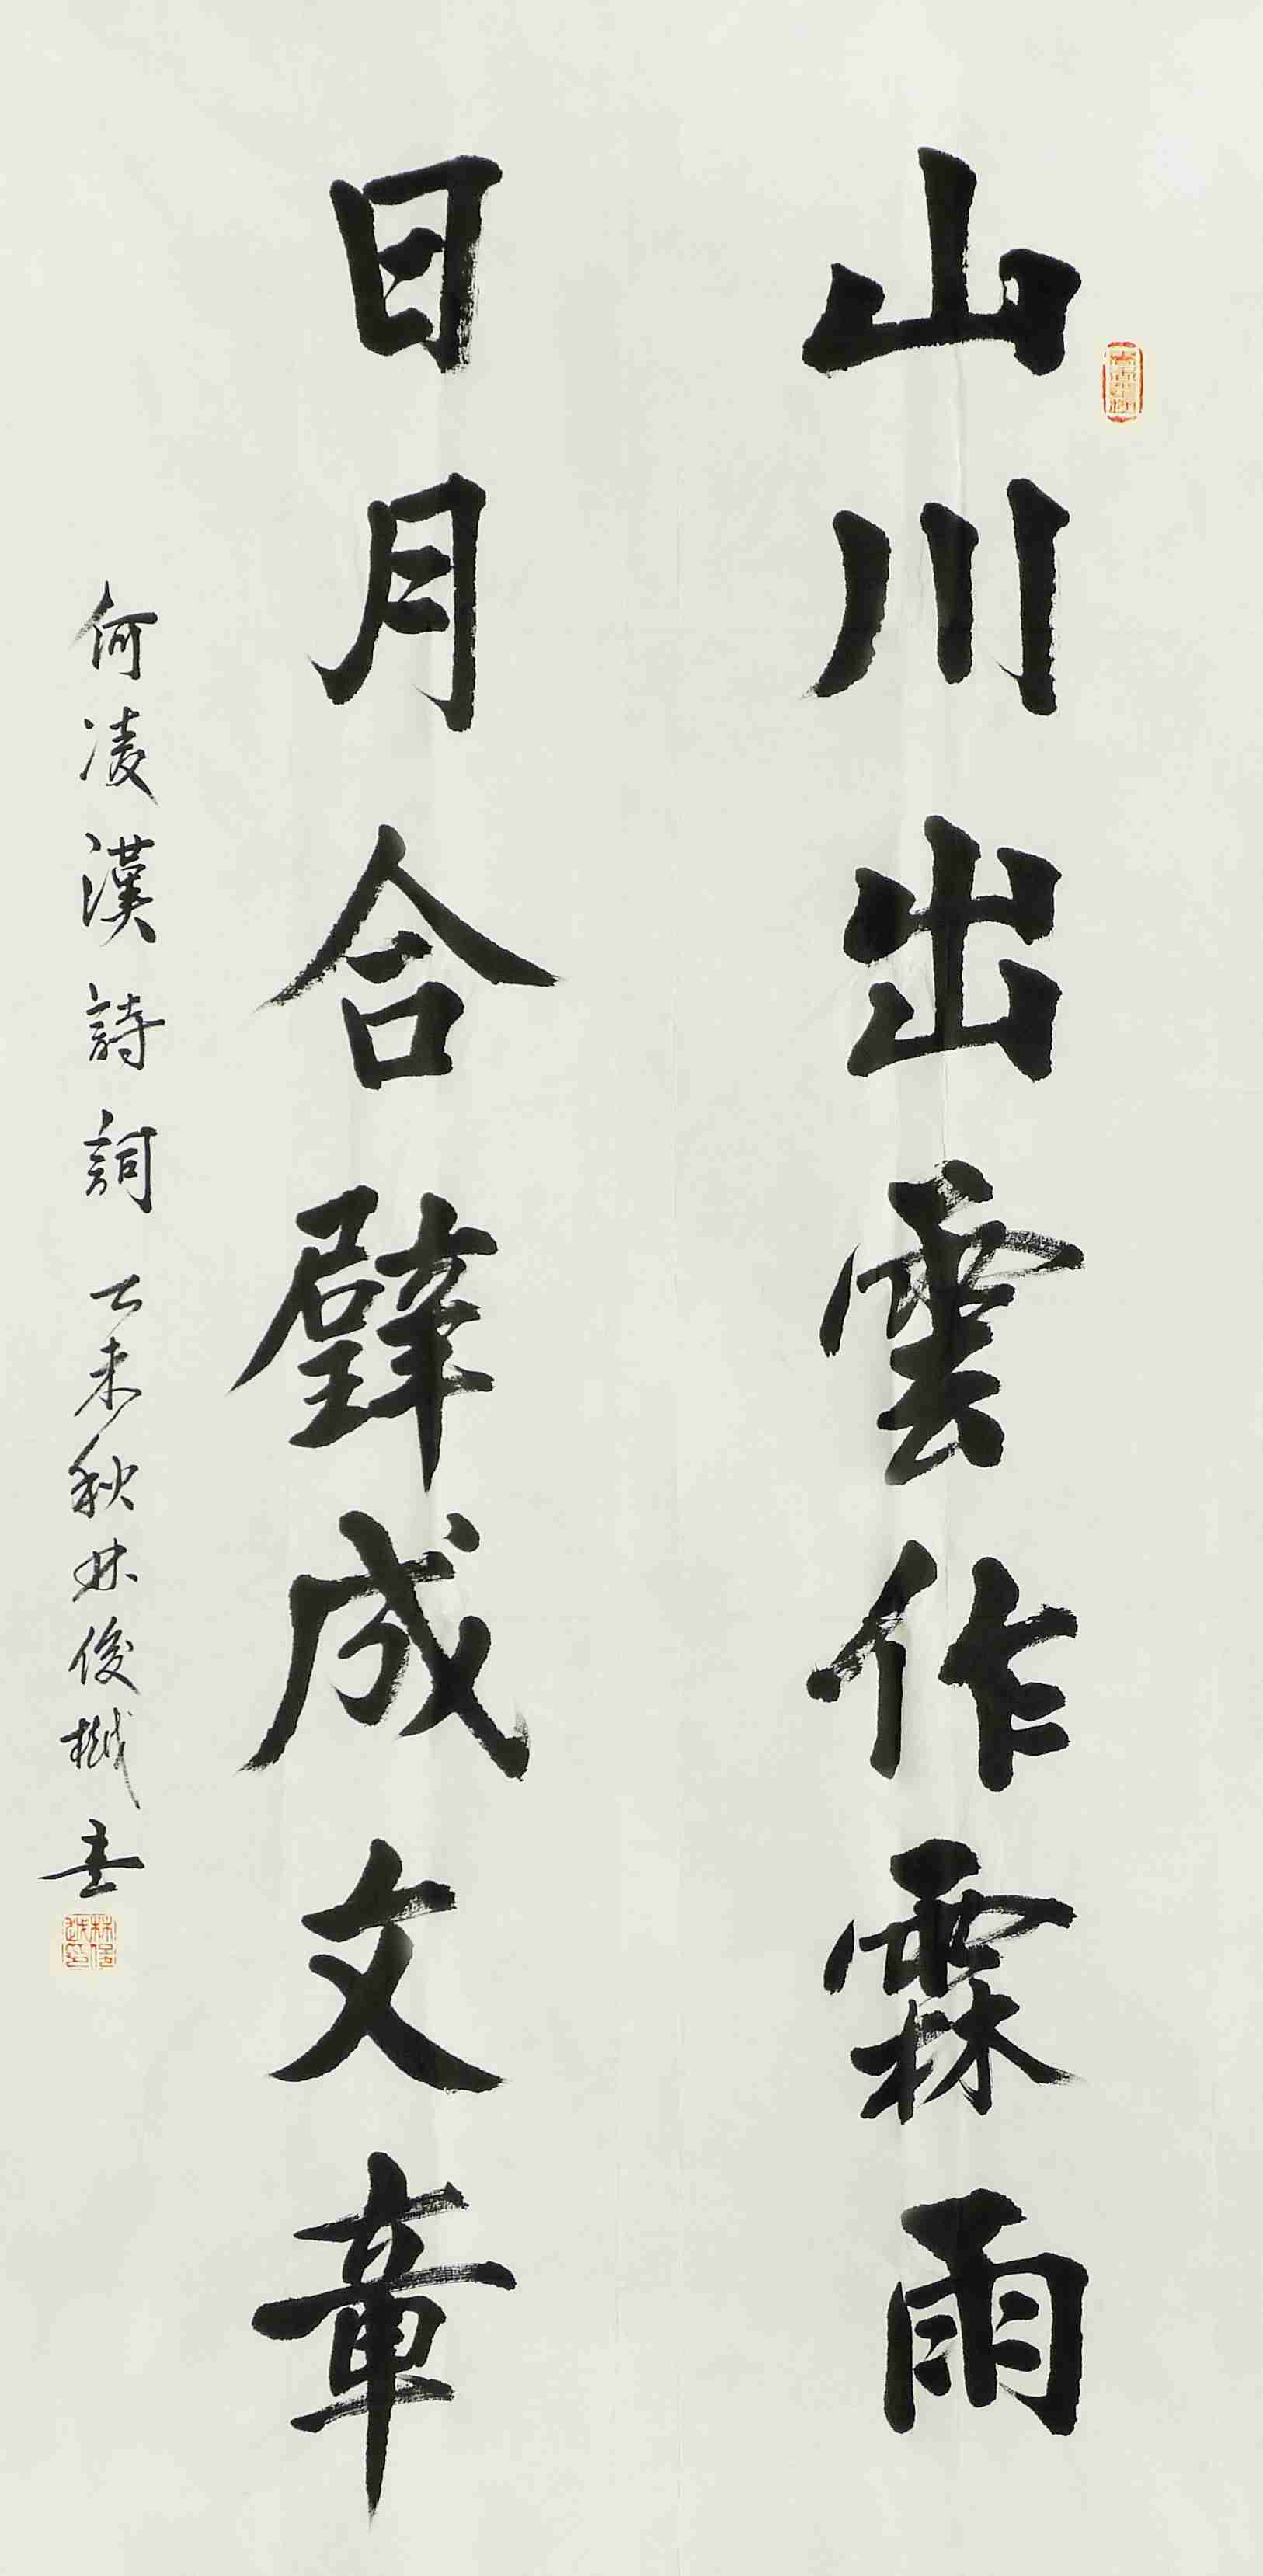 山川出雲作霖雨
日月合璧成文章
何凌漢詩詞 乙未秋林俊樾書